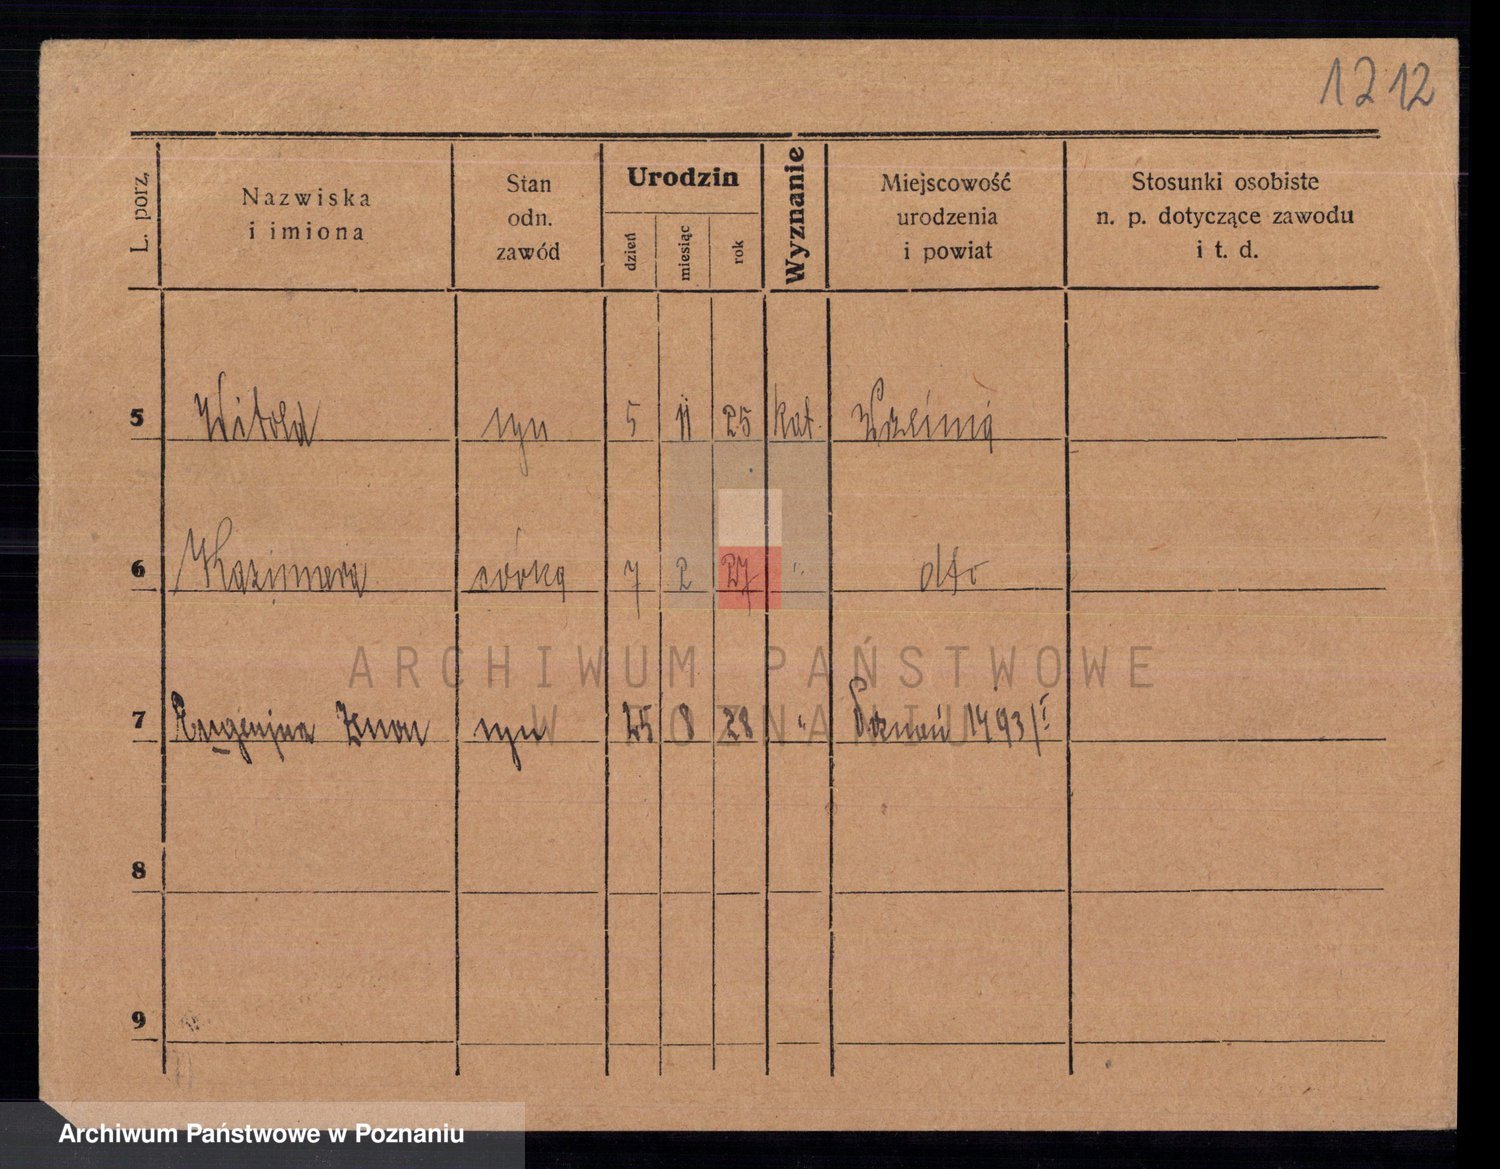 1212
L. porz.
Nazwiska
i imiona
Stan
odn.
zawód
Urodzin
dzień
miesiąc
rok
Wyznanie
Miejscowość
urodzenia
i powiat
Stosunki osobiste
n. p. dotyczące zawodu
i t. d.
5 Witold syn 5 11 25 kat.
6 Kazimiera córka 7 2 27 " dto
7 Zenon syn 25 8 28 " Poznań 1493/I
8
9
ARCHIWUM PAŃSTWOWE
W POZNANIU
Archiwum Państwowe w Poznaniu